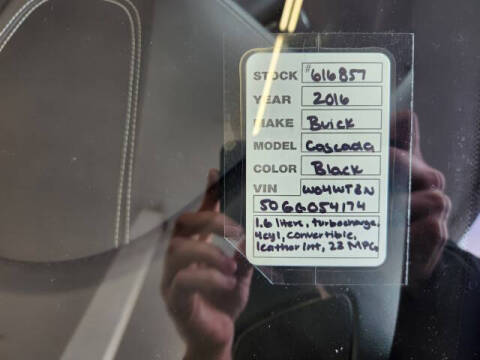 STOCK # 616857
YEAR 2016
MAKE Buick
MODEL Cascada
COLOR Black
VIN W04WT3N
50GG054174
1.6 litere, turbocharge,
4cyl, convertible,
leather Int, 23 MPG